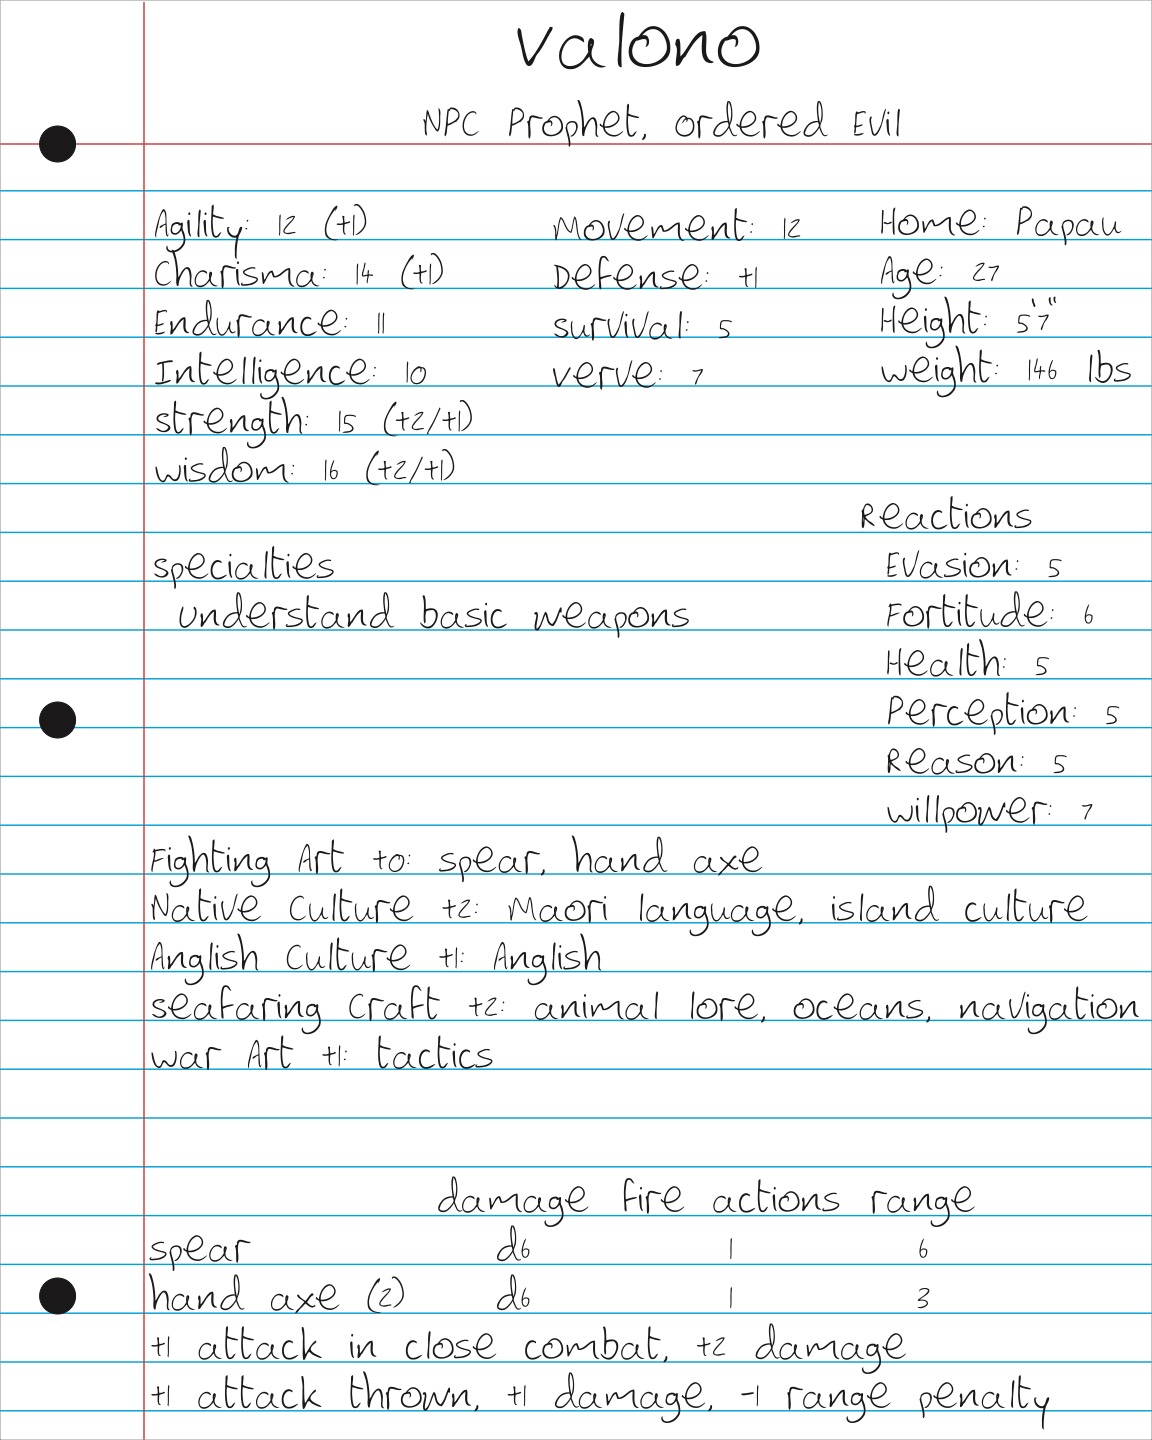 Valono
NPC Prophet, Ordered Evil
Agility: 12 (+1) Movement: 12 Home: Papau
Charisma: 14 (+1) Defense: +1 Age: 27
Endurance: 11 Survival: 5 Height: 5'7"
Intelligence: 10 Verve: 7 Weight: 146 lbs
Strength: 15 (+2/+1)
Wisdom: 16 (+2/+1)
Reactions
Specialties Evasion: 5
Understand basic weapons Fortitude: 6
Health: 5
Perception: 5
Reason: 5
Willpower: 7
Fighting Art +0: spear, hand axe
Native Culture +2: Maori language, island culture
Anglish Culture +1: Anglish
Seafaring Craft +2: animal lore, oceans, navigation
War Art +1: tactics
damage fire actions range
spear d6 1 6
hand axe (2) d6 1 3
+1 attack in close combat, +2 damage
+1 attack thrown, +1 damage, -1 range penalty